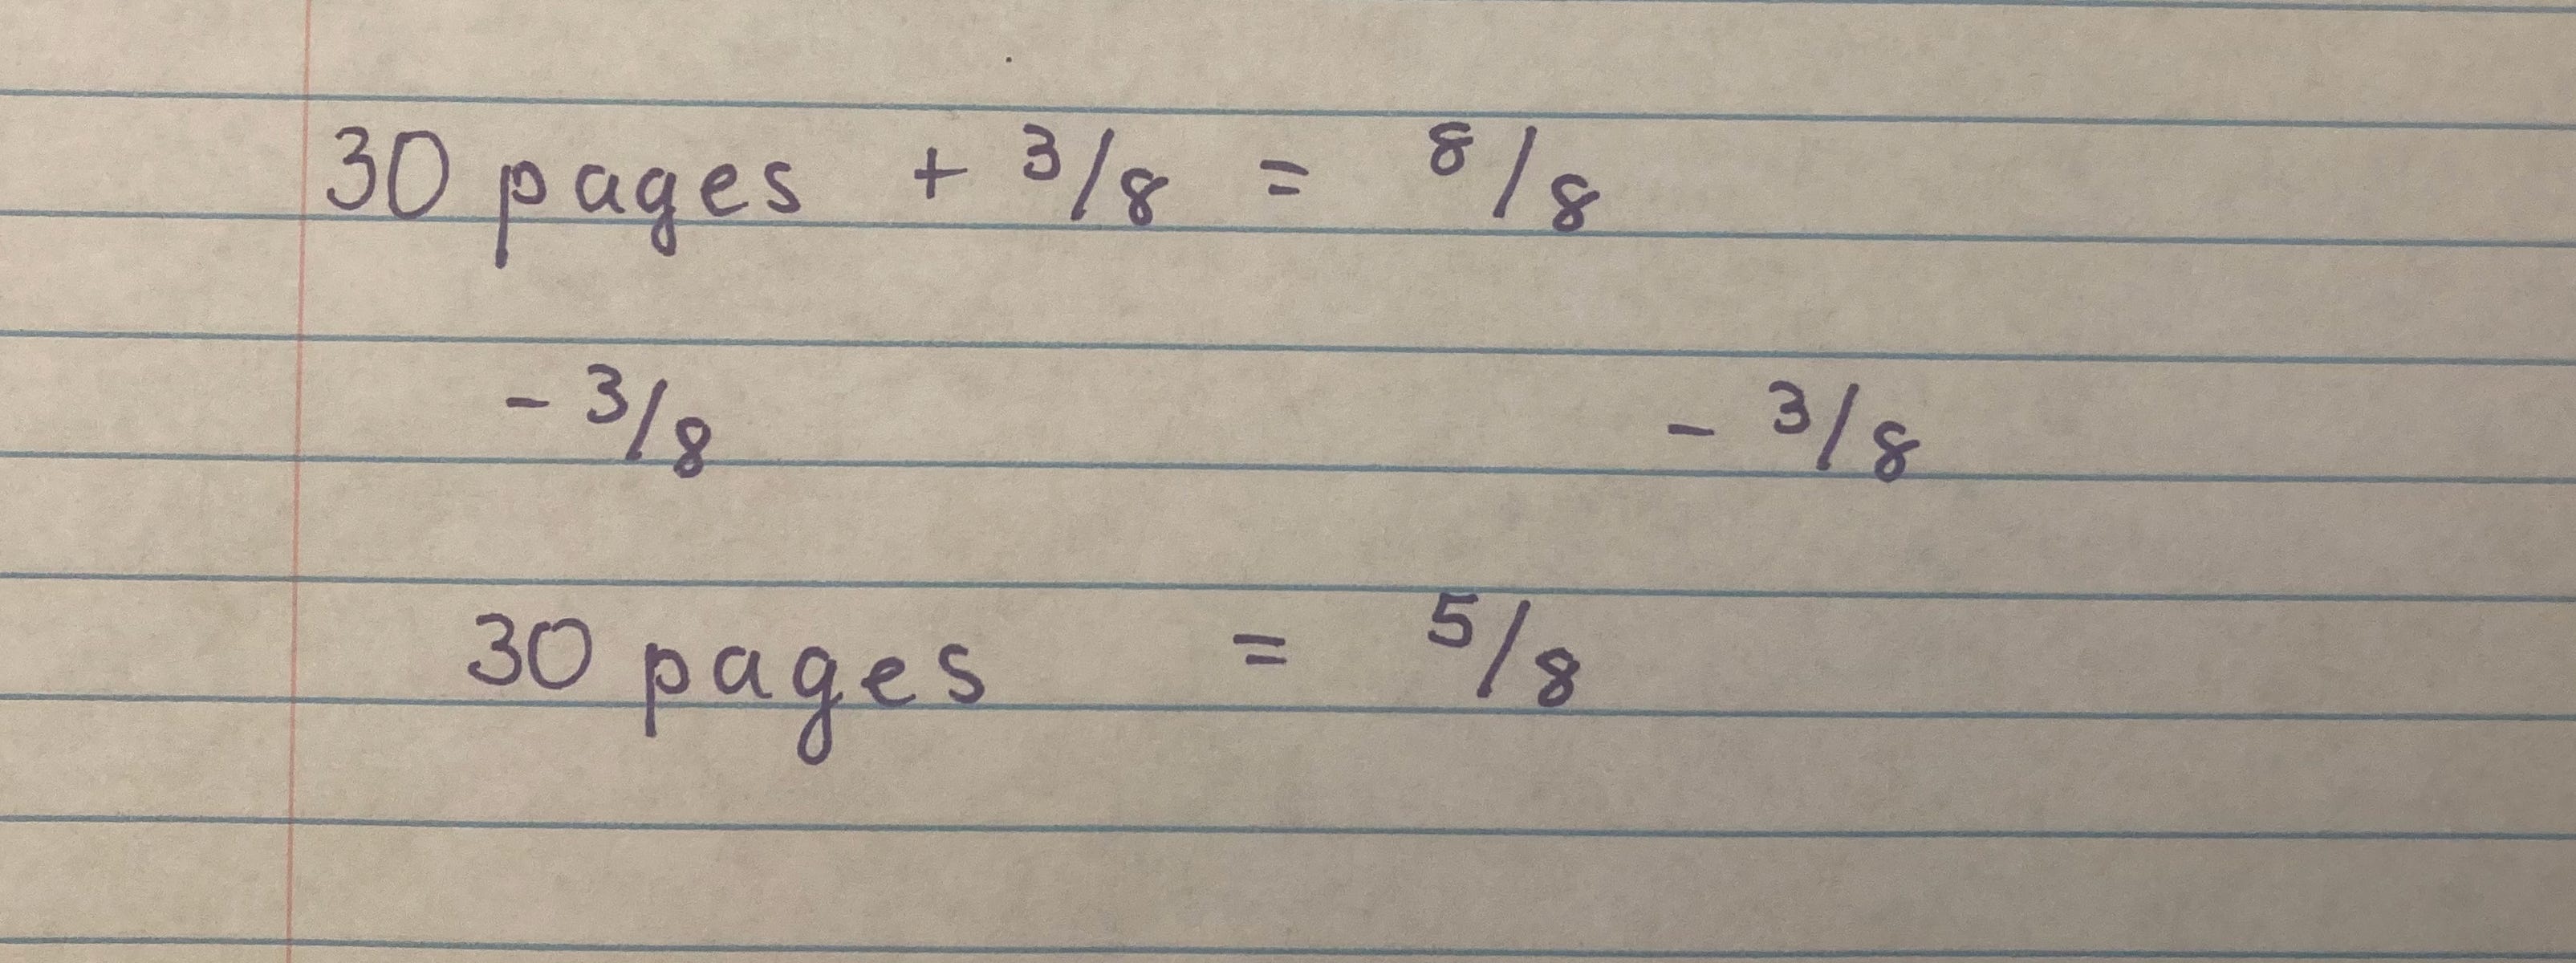 30 pages + 3/8 = 8/8
- 3/8 - 3/8
30 pages = 5/8